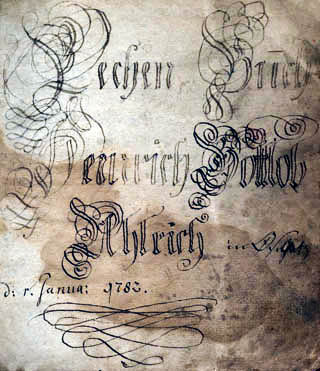 Rechen Buch
Heinrich Gottlob
Uhlrich in
d: 1. Janua: 1783.